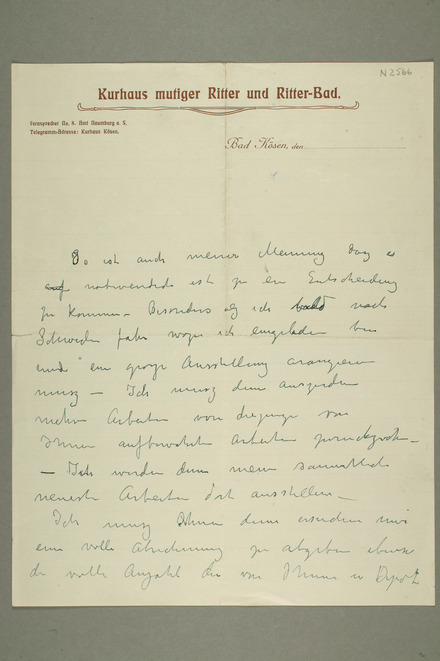 N 2566
Kurhaus mutiger Ritter und Ritter-Bad.
Fernsprecher No. 8. Amt Naumburg a. S.
Telegramm-Adresse: Kurhaus Kösen.
Bad Kösen, den
So ist auch meine Meinung dasz es
notwendigt ist zu ein Entscheidung
zu kommen – Besonders als ich bald nach
Schweden fahre wozu ich eingeladen bin
und ein grosze Ausstellung arangieren
musz – Ich musz dem auszerdem
mehre Arbeiten von von
Ihnen aufbewahrten Arbeiten
– Ich werden dann mein sammtliche
neueste Arbeiten dort ausstellen –
Ich musz Ihnen dann ersuchen mir
eine volle Abrechnung zu abgeben ebenso
die volle Anzahl die von Ihnen in Depot